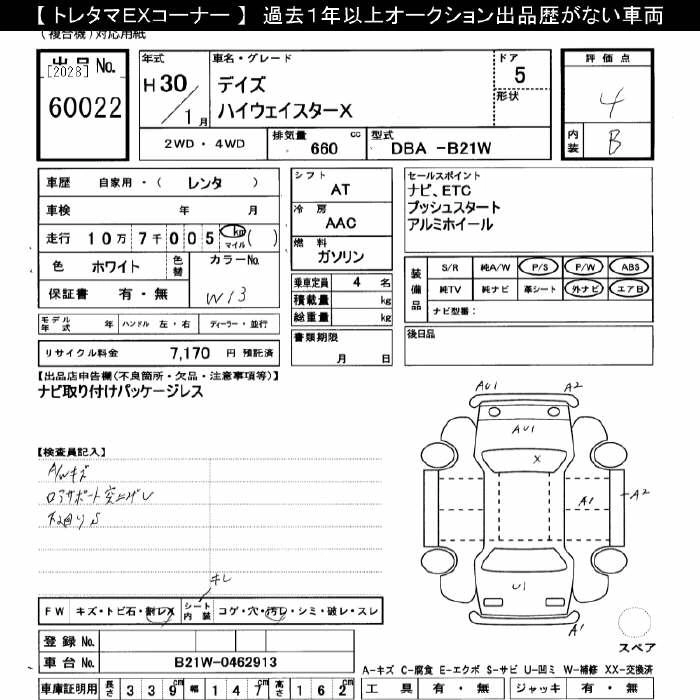 【 トレタマEXコーナー 】 過去1年以上オークション出品歴がない車両
(複合機)対応用紙
出品 No.
[2028]
60022
年式
H 30 / 1 月
車名・グレード
デイズ
ハイウェイスターX
ドア
5
形状
評価点
4
内装
B
2WD ・ 4WD
排気量
660 cc
型式
DBA -B21W
車歴 自家用 ・ ( レンタ )
車検 年 月
走行 10万 7千 0 0 5 km マイル ( )
色 ホワイト 色替 カラーNo.
W13
保証書 有 ・ 無
シフト
AT
冷房
AAC
燃料
ガソリン
乗車定員 4 名
積載量 kg
総重量 kg
書類期限
月 日
セールスポイント
ナビ、ETC
プッシュスタート
アルミホイール
装備品
S/R 純A/W P/S P/W ABS
純TV 純ナビ 革シート 外ナビ エアB
ナビ型番:
後日品
モデル年式 年 ハンドル 左 ・ 右 ディーラー ・ 並行
リサイクル料金 7,170 円 預託済
【出品店申告欄(不良箇所・欠品・注意事項等)】
ナビ取り付けパッケージレス
【検査員記入】
A/Wキズ
ロアサポート突上げレ
下廻りS
キレ
FW キズ・トビ石・割レX シート内装 コゲ・穴・汚レ・シミ・破レ・スレ
登録 No.
車台 No. B21W-0462913
車庫証明用 長さ 3 3 9 cm 幅 1 4 7 cm 高さ 1 6 2 cm
AU1
A2
AU1
X
A1
A2
U1
A1
スペア
A-キズ C-腐食 E-エクボ S-サビ U-凹ミ W-補修 XX-交換済
工具 有 ・ 無 ジャッキ 有 ・ 無